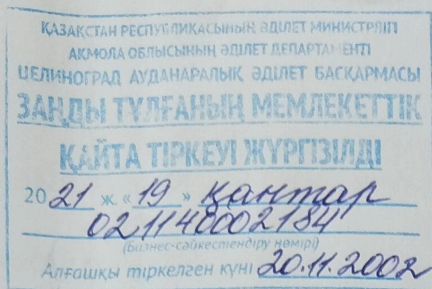 ҚАЗАҚСТАН РЕСПУБЛИКАСЫНЫҢ ӘДІЛЕТ МИНИСТРЛІГІ
АҚМОЛА ОБЛЫСЫНЫҢ ӘДІЛЕТ ДЕПАРТАМЕНТІ
ЦЕЛИНОГРАД АУДАНАРАЛЫҚ ӘДІЛЕТ БАСҚАРМАСЫ
ЗАҢДЫ ТҰЛҒАНЫҢ МЕМЛЕКЕТТІК
ҚАЙТА ТІРКЕУІ ЖҮРГІЗІЛДІ
20 21 ж. «19» қантар
021140002184
(Бизнес-сәйкестендіру нөмірі)
Алғашқы тіркелген күні 20.11.2002